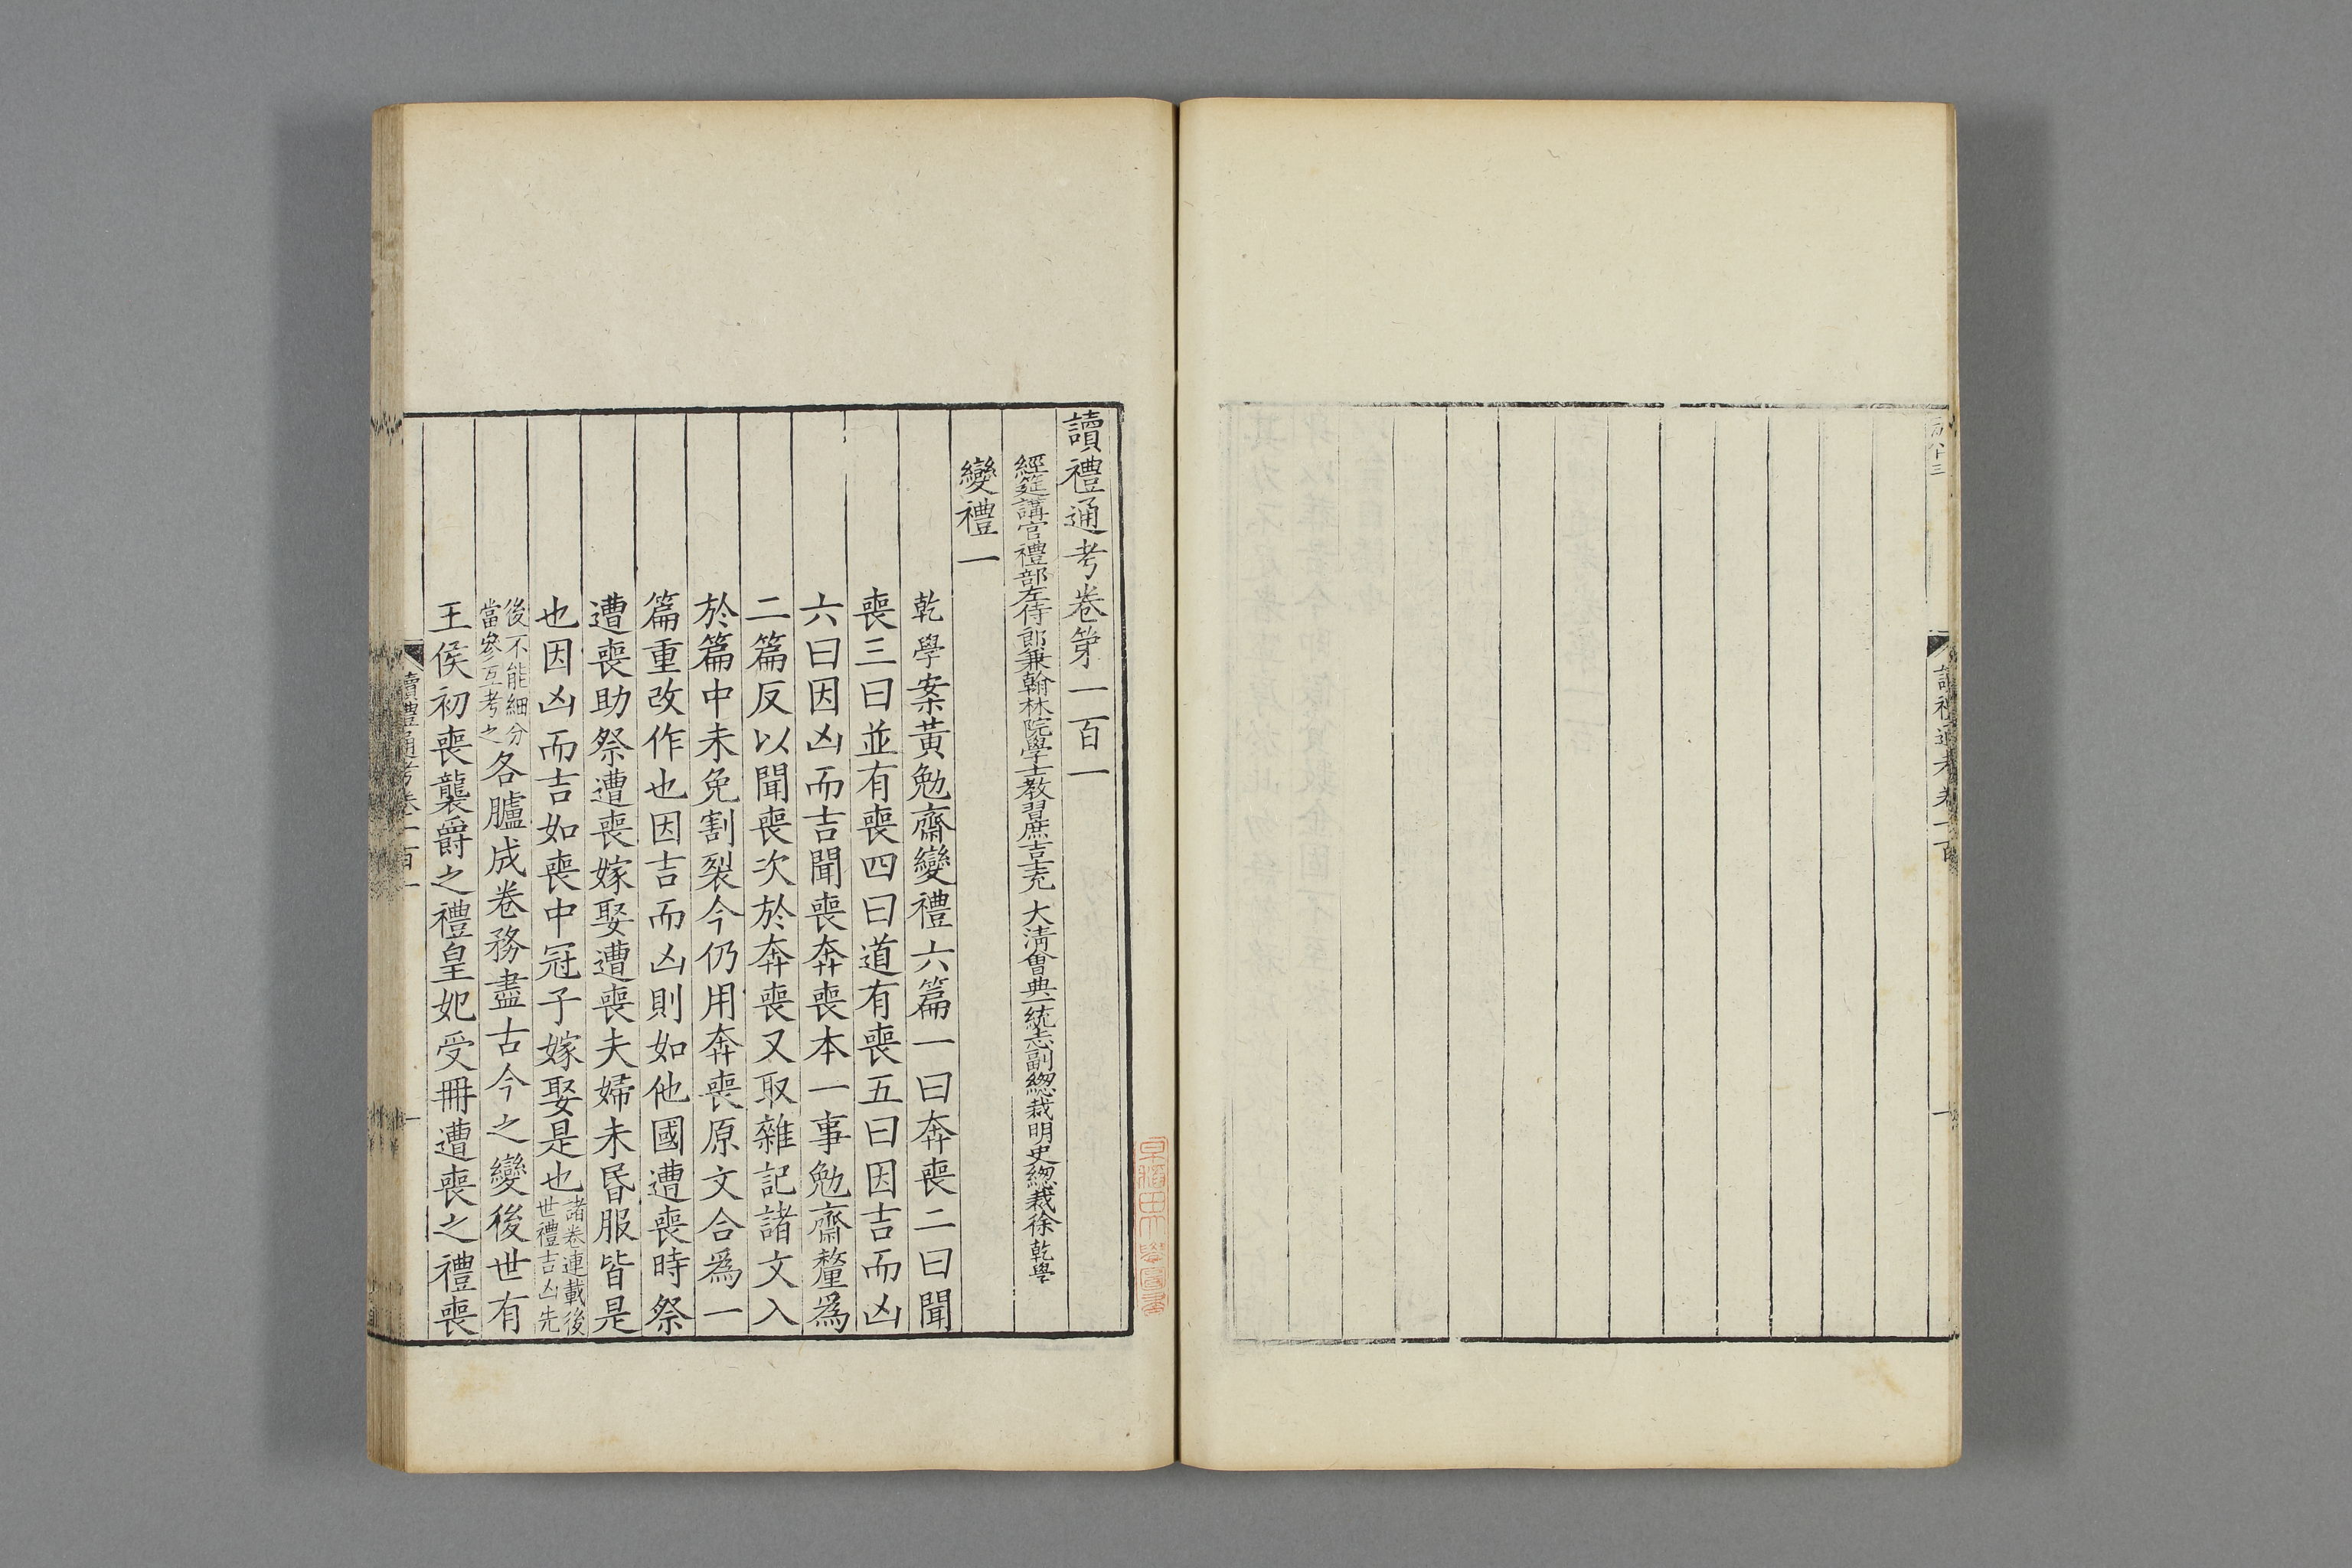 讀禮通考卷一百
讀禮通考卷第一百一
經筵講官禮部左侍郎兼翰林院學士教習庶吉士充　大清會典一統志副總裁明史總裁徐乾學
變禮一
乾學案黃勉齋變禮六篇一曰奔喪二曰聞
喪三曰並有喪四曰道有喪五曰因吉而凶
六曰因凶而吉聞喪奔喪本一事勉齋釐爲
二篇反以聞喪次於奔喪又取雜記諸文入
於篇中未免割裂今仍用奔喪原文合爲一
篇重改作也因吉而凶則如他國遭喪時祭
遭喪助祭遭喪嫁娶遭喪夫婦未昏服皆是
也因凶而吉如喪中冠子嫁娶是也諸卷連載後
世禮吉凶先
後不能細分
當參互考之各臚成卷務盡古今之變後世有
王侯初喪襲爵之禮皇妃受冊遭喪之禮喪
讀禮通考卷一百一
一
早稻田大學圖書